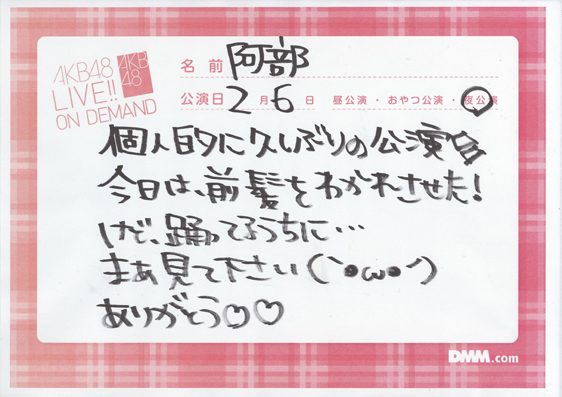 AKB48
LIVE!!
ON DEMAND
AKB
48
名前 阿部
公演日 2月6日 昼公演・おやつ公演・夜公演
個人的に久しぶりの公演
今日は、前髪をわかれさせた!
けど、踊ってるうちに…
まあ見て下さい(`・ω・´)
ありがとう♡♡
DMM.com